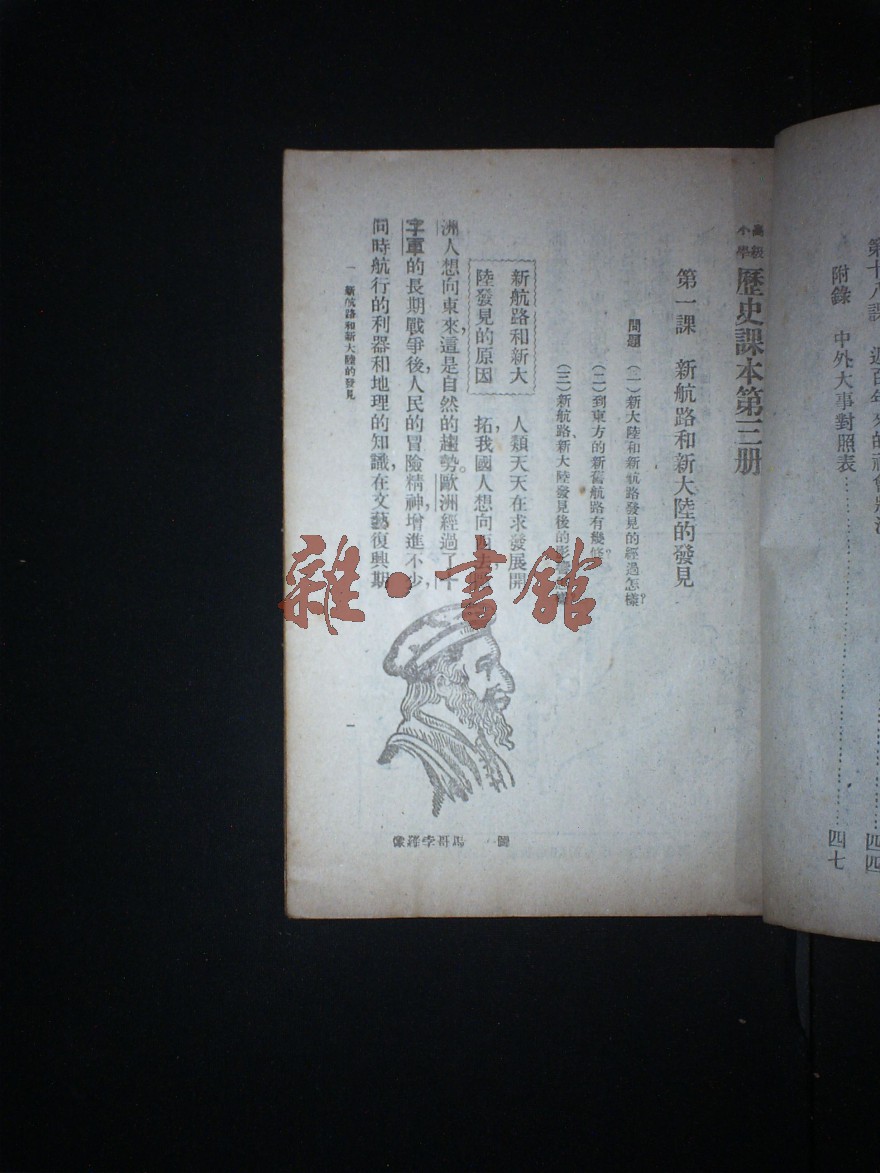 第十八課
附錄 中外大事對照表………………四七
四四
高級
小學
歷史課本第三册
第一課 新航路和新大陸的發見
問題 (一)新大陸和新航路發見的經過怎樣?
(二)到東方的新舊航路有幾條?
(三)新航路、新大陸發見後的影
新航路和新大
陸發見的原因
人類天天在求發展開
拓,我國人想向西去,
洲人想向東來,這是自然的趨勢。歐洲經過了十
字軍的長期戰爭後,人民的冒險精神,增進不少,
同時航行的利器和地理的知識,在文藝復興期
圖一 馬哥孛羅像
一 新航路和新大陸的發見
一
雜·書館